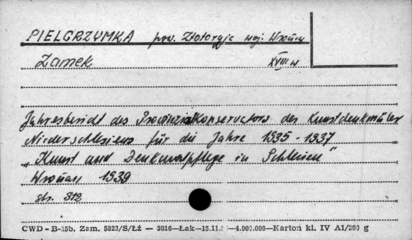 PIELGRZYMKA pow. Złotoryja woj. Wrocław
Zamek XVIII w
Jahresbericht des Provinzialkonservators der Kunstdenkmäler
Niederschlesiens für die Jahre 1935-1937
"Kunst und Denkmalpflege in Schlesien"
Wrocław 1939
str. 312
CWD - B-15b. Zam. 5823/S/Łż — 3016—Łak—15.11. —4.000.000—Karton kl. IV A1/250 g